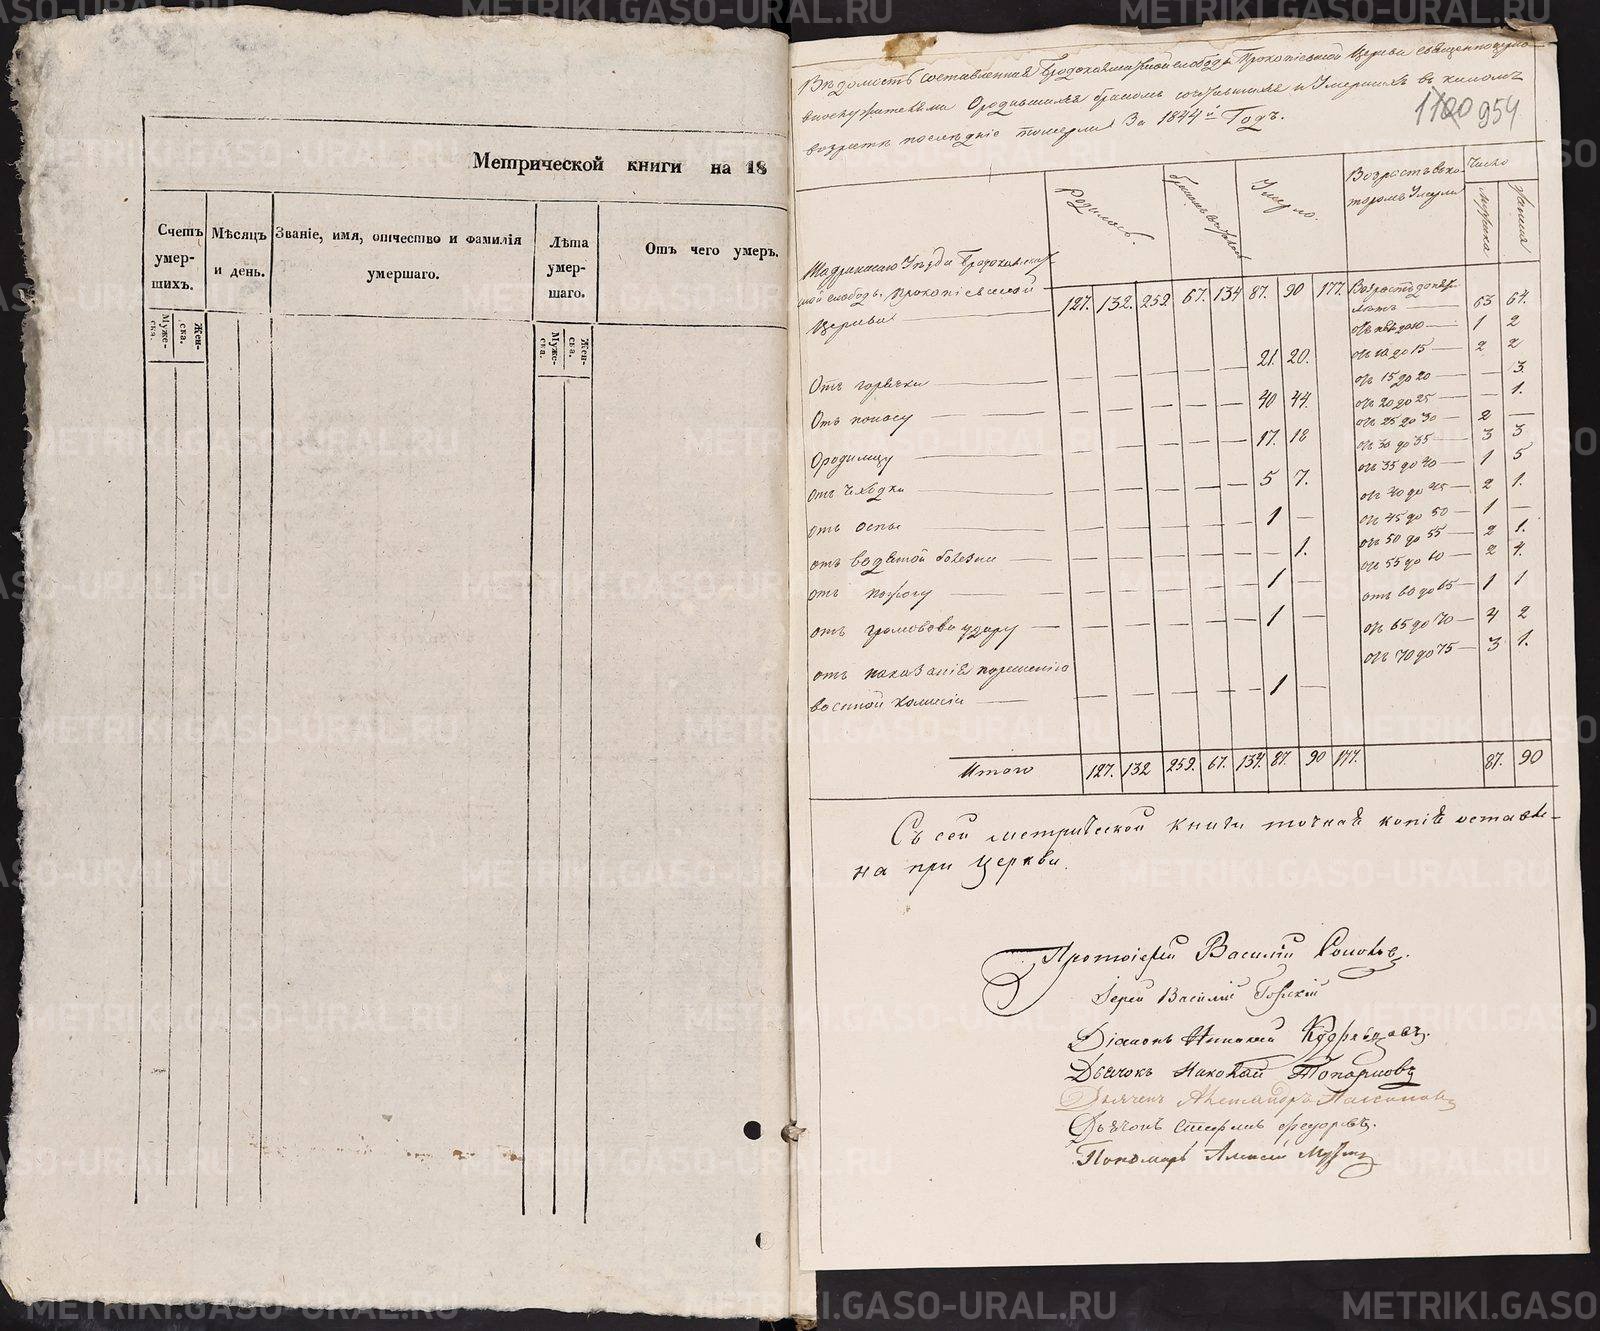 Метрической книги на 18
Счетъ умер-шихъ.
Мѣсяцъ и день.
Званіе, имя, отчество и фамилія умершаго.
Лѣта умер-шаго.
Отъ чего умеръ.
Муже-ска.
Жен-ска.
Муже-ска.
Жен-ска.
Вѣдомость составленная слободы Прокопіевской Церкви священноцерко
внослужителями Ородившихся бракомъ сочетавшихся и Умершихъ въ какомъ
возрастѣ послѣдніе померли За 1844й Годъ.
1100 954
Родилось.
Умерло.
Возрастъ въ ко-
торомъ Умерли
Число
мужска
женска
Шадринскаго Уѣзда
слободы Прокопіевской
Церкви
127. 132. 259 67. 134 87. 90 177.
63 64.
1 2
отъ 10 до 15 — 2 2
отъ 15 до 20 — — 3.
отъ 20 до 25 — — 1.
отъ 25 до 30 — 2 —
отъ 30 до 35 — 3 3
отъ 35 до 40 — 1 5
отъ 40 до 45 — 2 1.
отъ 45 до 50 — 1 —
отъ 50 до 55 — 2 1.
отъ 55 до 60 — 2 4.
отъ 60 до 65 — 1 1
отъ 65 до 70 — 4 2
отъ 70 до 75 — 3 1.
Отъ горячки — 21. 20.
Отъ поносу — 40 44.
Ородимцу — 17. 18
отъ чахотки — 5 7.
отъ оспы — 1 —
отъ водяной болезни — — 1.
отъ — 1 —
отъ громоваго удару — 1 —
отъ наказанія порешенію
военной Комисіи — 1 —
Итого 127. 132 259. 67. 134. 87. 90 177. 87. 90
Съ сей метрической книги точная копія оставле-
на при Церкви.
Протоіерей Василій Поповъ.
Іерей Василій Горскій
Діаконъ Николай Кудрявцовъ.
Дьячокъ Николай Топорковъ
Дьячекъ Александръ
Дьячокъ Стефанъ Федоровъ.
Пономарь Алексей
METRIKI.GASO-URAL.RU